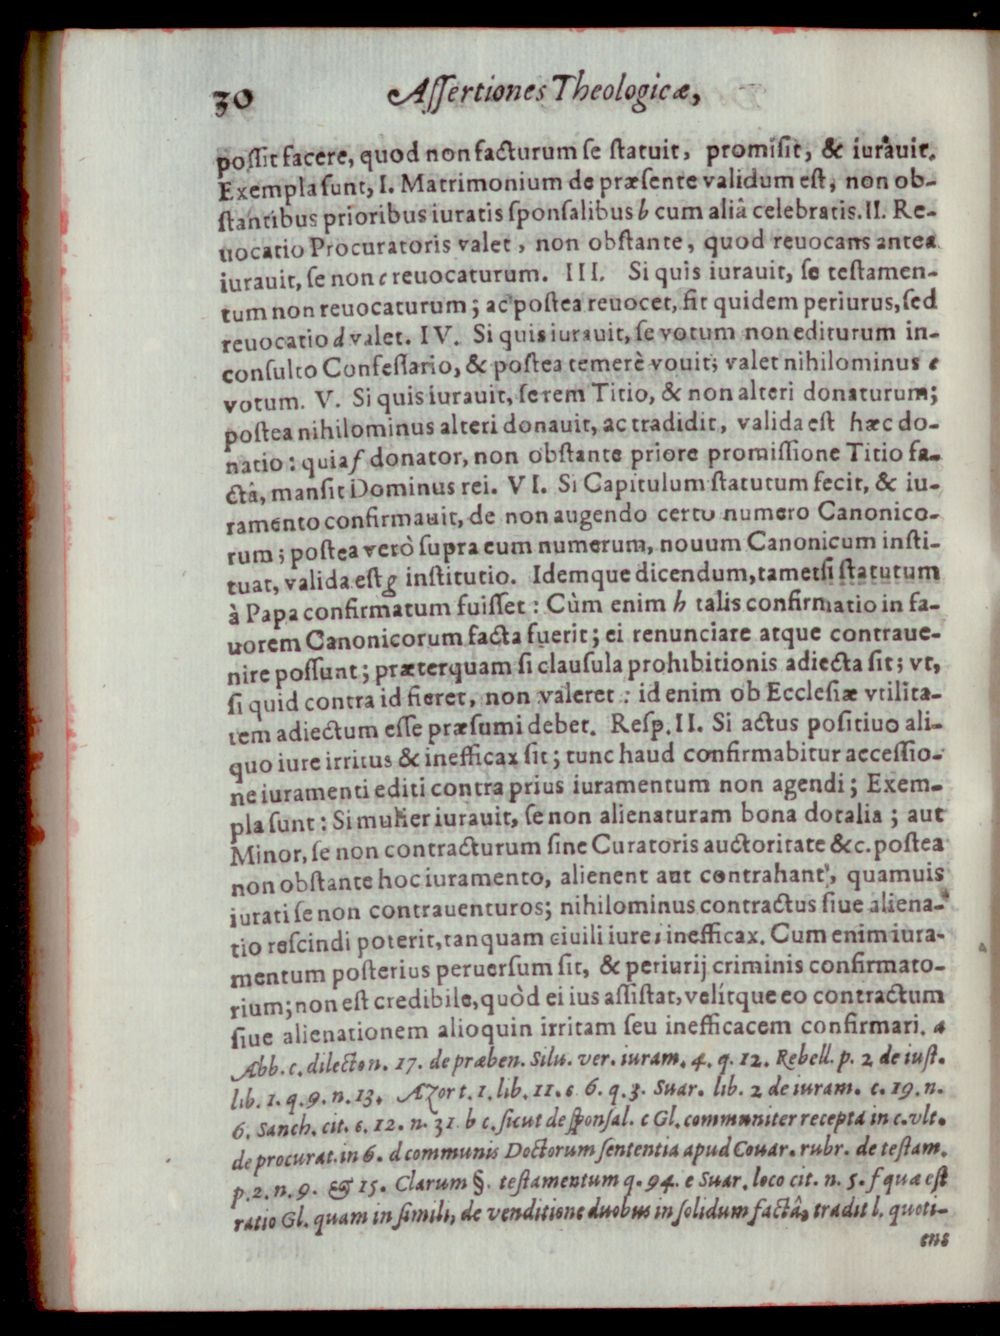 30 Aſſertiones Theologicæ,
poſſit facere, quod non facturum ſe ſtatuit, promiſit, & iurauit.
Exempla ſunt, I. Matrimonium de præſente validum est, non ob-
ſtantibus prioribus iuratis ſponſalibus b cum aliâ celebratis. II. Re-
uocatio Procuratoris valet, non obſtante, quod reuocans antea
iurauit, ſe non c reuocaturum. III. Si quis iurauit, ſe teſtamen-
tum non reuocaturum; ac poſtea reuocet, ſit quidem periurus, ſed
reuocatio d valet. IV. Si quis iurauit, ſe votum non editurum in-
conſulto Confeſſario, & poſtea temerè vouit; valet nihilominus e
votum. V. Si quis iurauit, ſe rem Titio, & non alteri donaturum;
poſtea nihilominus alteri donauit, ac tradidit, valida eſt hæc do-
natio: quia f donator, non obſtante priore promiſſione Titio fa-
ctâ, manſit Dominus rei. VI. Si Capitulum ſtatutum fecit, & iu-
ramento confirmauit, de non augendo certo numero Canonico-
rum; poſtea verò ſupra eum numerum, nouum Canonicum inſti-
tuat, valida eſt g inſtitutio. Idemque dicendum, tametſi ſtatutum
à Papa confirmatum fuiſſet: Cùm enim h talis confirmatio in fa-
uorem Canonicorum facta fuerit; ei renunciare atque contraue-
nire poſſunt; præterquam ſi clauſula prohibitionis adiecta ſit; vt,
ſi quid contra id fieret, non valeret: id enim ob Eccleſiæ vtilita-
tem adiectum eſſe præſumi debet. Reſp. II. Si actus poſitiuo ali-
quo iure irritus & inefficax ſit; tunc haud confirmabitur acceſſio-
ne iuramenti editi contra prius iuramentum non agendi; Exem-
pla ſunt: Si mulier iurauit, ſe non alienaturam bona dotalia; aut
Minor, ſe non contracturum ſine Curatoris auctoritate &c. poſtea
non obſtante hoc iuramento, alienent aut contrahant, quamuis
iurati ſe non contrauenturos; nihilominus contractus ſiue aliena-
tio reſcindi poterit, tanquam ciuili iure i inefficax. Cum enim iura-
mentum poſterius peruerſum ſit, & periurij criminis confirmato-
rium; non eſt credibile, quòd ei ius aſſiſtat, velítque eo contractum
ſiue alienationem alioquin irritam ſeu inefficacem confirmari. a
Abb. c. dilecto n. 17. de præben. Silu. ver. iuram. 4. q. 12. Rebell. p. 2 de iuſt.
lib. 1. q. 9. n. 13. Azor t. 1. lib. 11. c. 6. q. 3. Suar. lib. 2 de iuram. c. 19. n.
6. Sanch. cit. c. 12. n. 31 b c. ſicut de ſponſal. c Gl. communiter recepta in c. vlt.
de procurat. in 6. d communis Doctorum ſententia apud Couar. rubr. de teſtam.
p. 2. n. 9. & 15. Clarum §. teſtamentum q. 94. e Suar. loco cit. n. 5. f quæ eſt
ratio Gl. quam in ſimili, de venditione duobus in ſolidum factâ, tradit l. quoti-
ens